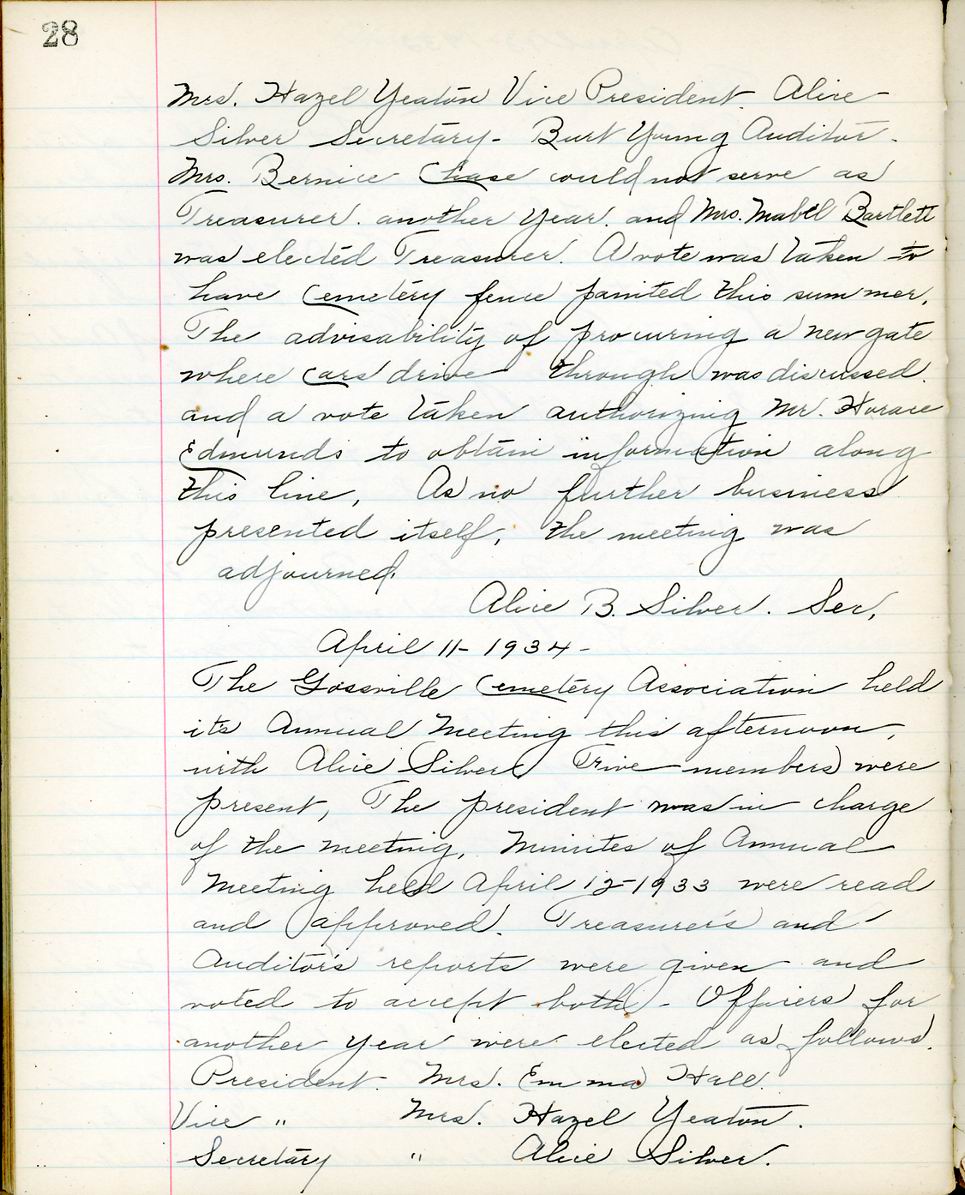 28
Mrs. Hazel Yeaton Vice President. Alice
Silver Secretary - Burt Young Auditor.
Mrs. Bernice Chase could not serve as
Treasurer. another Year. and Mrs. Mabel Bartlett
was elected Treasurer. A vote was taken to
have Cemetery fence painted this summer.
The advisability of procuring a new gate
where cars drive through was discussed.
and a vote taken authorizing Mr. Horace
Edmunds to obtain information along
this line, As no further business
presented itself, the meeting was
adjourned.
Alice B. Silver. Sec,
April 11 - 1934 -
The Gossville Cemetery Association held
it's Annual Meeting this afternoon,
with Alice Silver members were
present, The president was in charge
of the meeting, Minutes of Annual
Meeting held April 12 - 1933 were read
and approved. Treasurer's and
Auditor's reports were given and
voted to accept both - Officers for
another year were elected as follows.
President. Mrs. Emma Hall.
Vice " Mrs. Hazel Yeaton.
Secretary " Alice Silver.